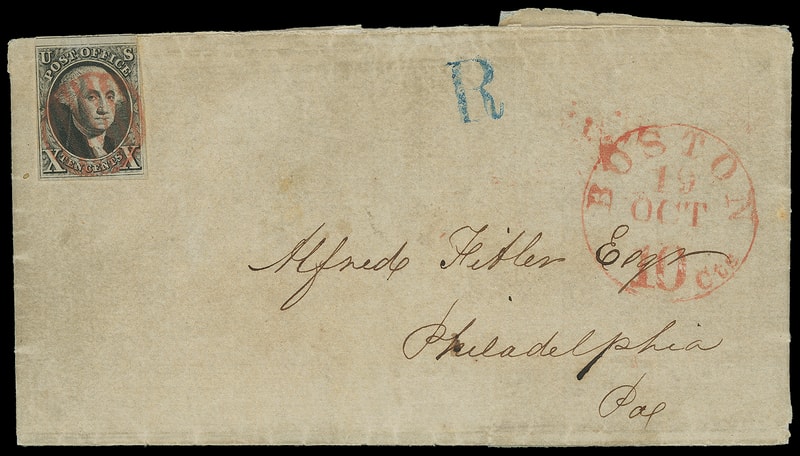 U S
POST OFFICE
X TEN CENTS X
R
BOSTON
19
OCT
10 cts
Alfred Fitler Esqr
Philadelphia
Pae